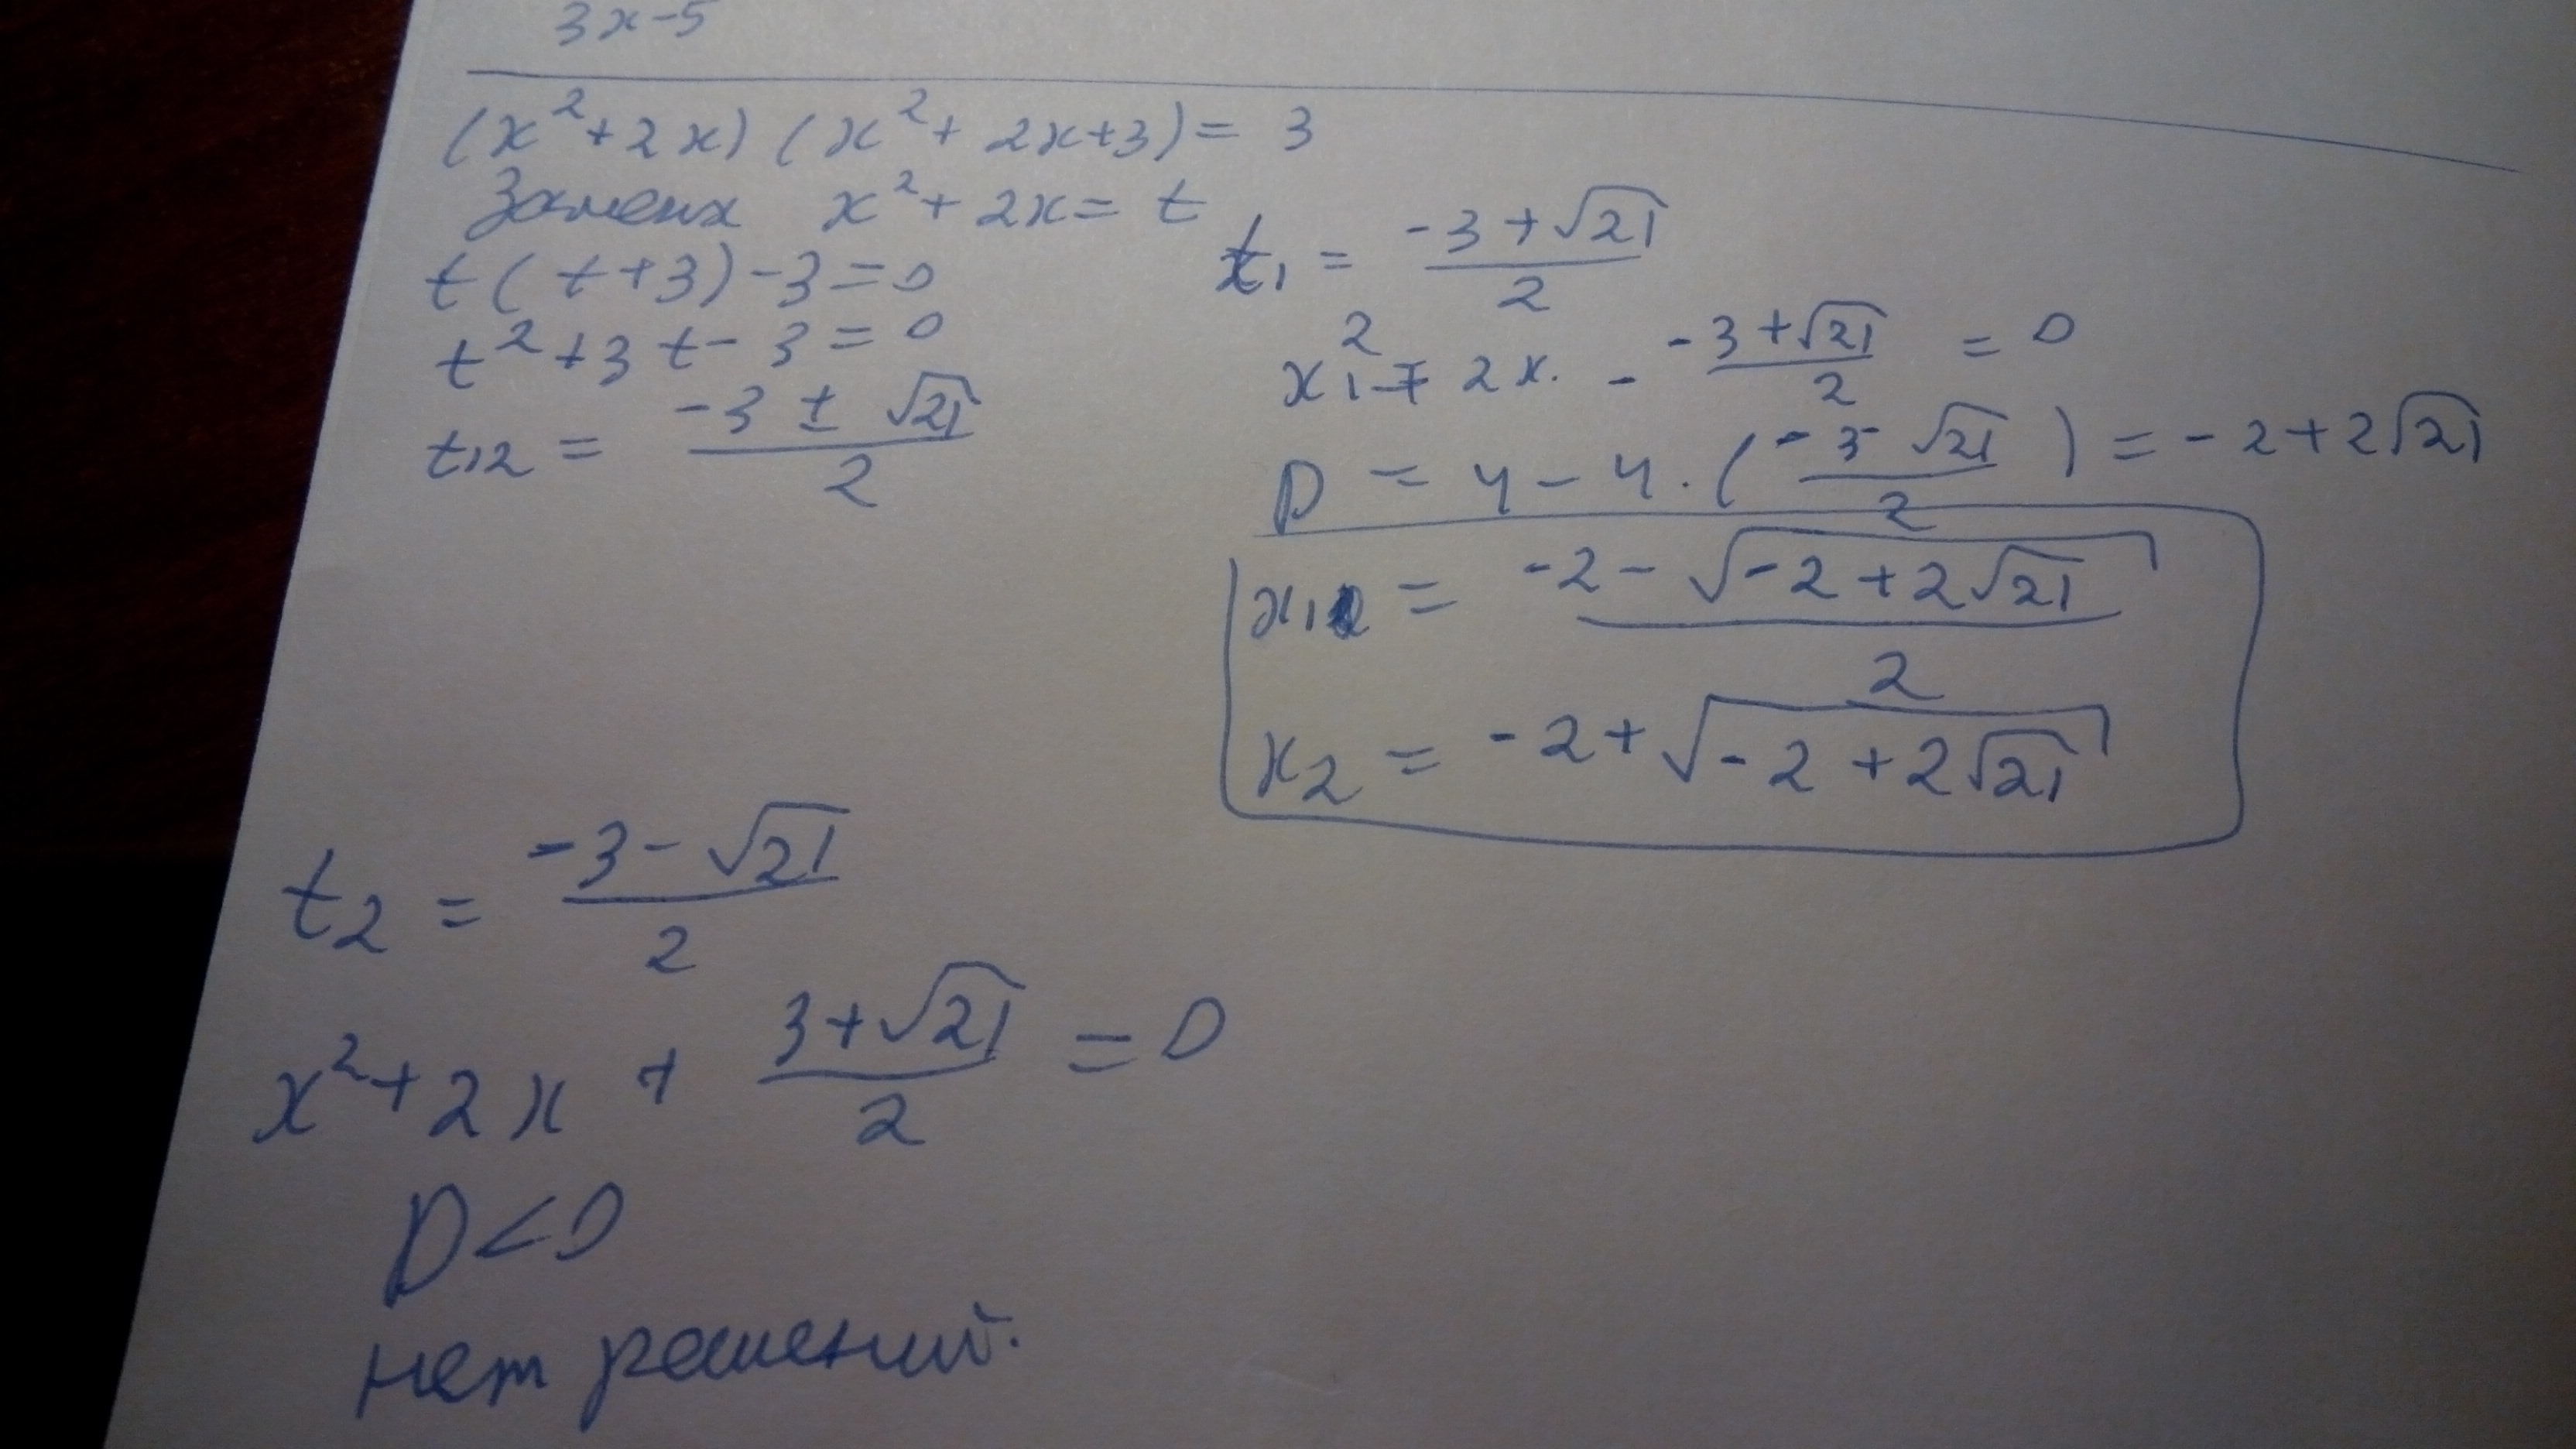 3x-5
(x²+2x)(x²+2x+3)=3
Замена x²+2x=t
t(t+3)-3=0
t²+3t-3=0
t₁₂ = (-3 ± √21)/2
t₁ = (-3+√21)/2
x₁² + 2x. - (-3+√21)/2 = 0
D = 4-4·((-3-√21)/2) = -2+2√21
x₁ = (-2-√(-2+2√21))/2
x₂ = -2+√(-2+2√21)
t₂ = (-3-√21)/2
x²+2x + (3+√21)/2 = 0
D<0
нет решений.